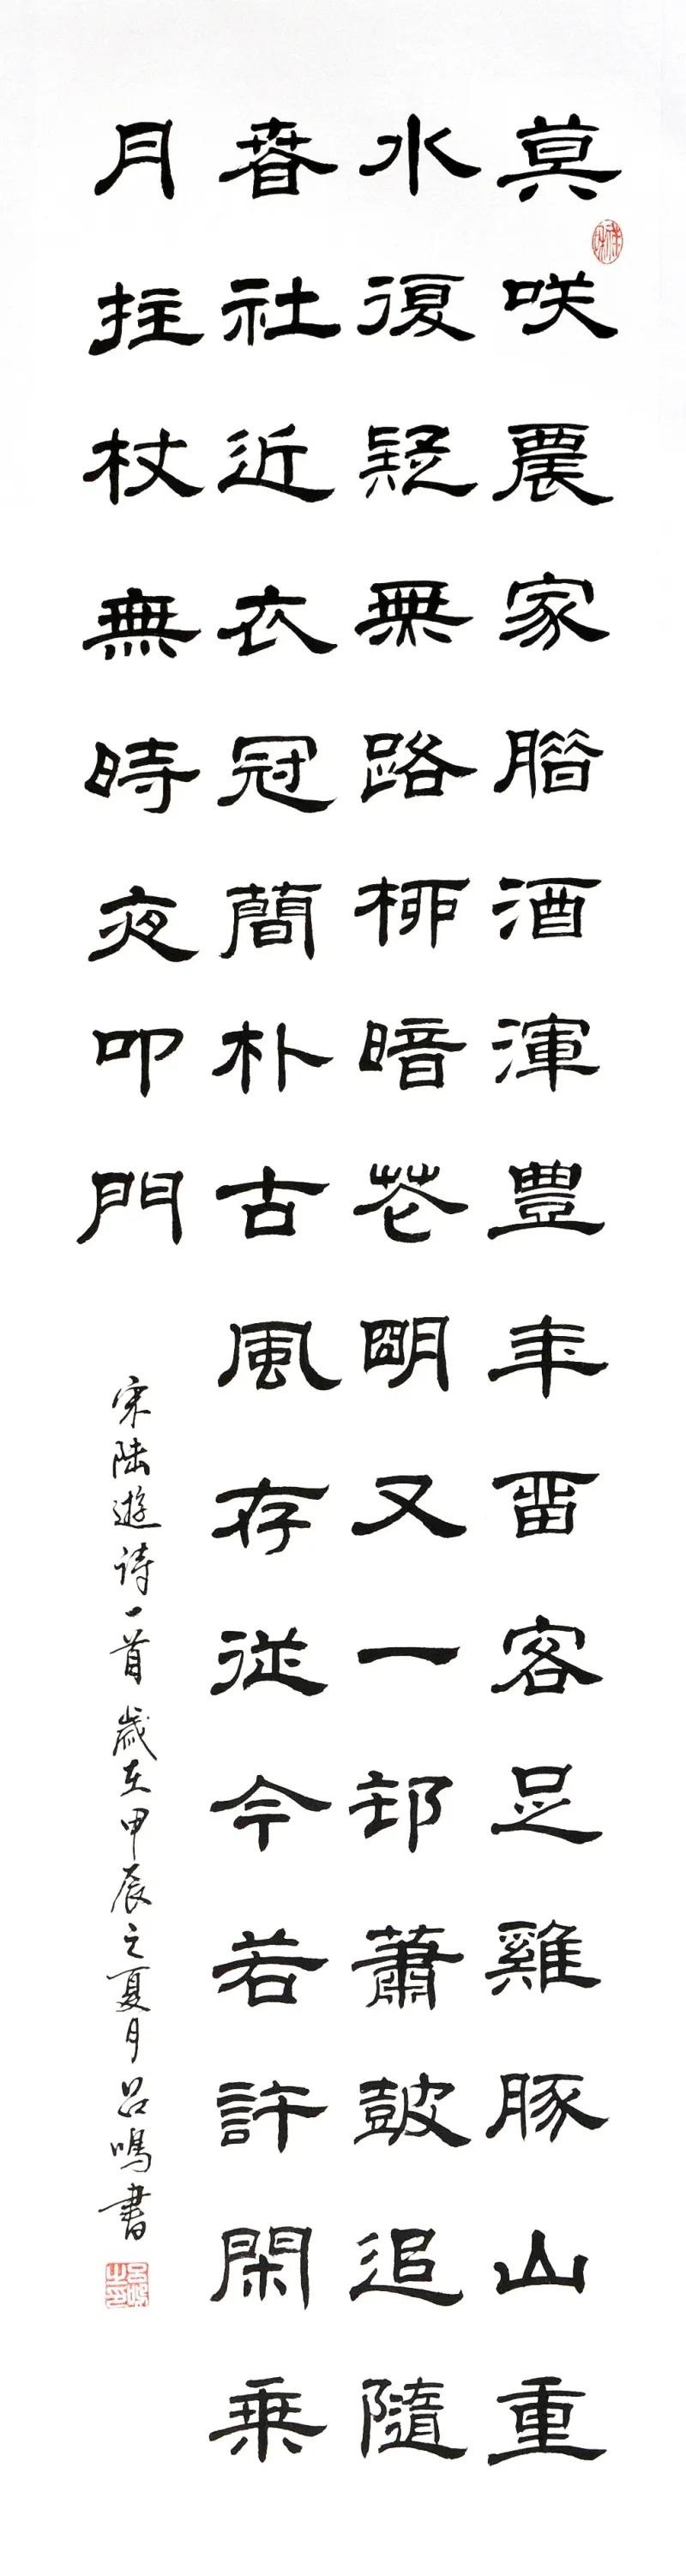 莫咲農家臈酒渾豊年畱客足雞豚山重
水復疑無路桺暗花朙又一邨蕭鼓追隨
春社近衣冠簡朴古風存從今若許閑乗
月拄杖無時夜叩門
宋陸遊詩一首 歲在甲辰之夏月 呂鳴書